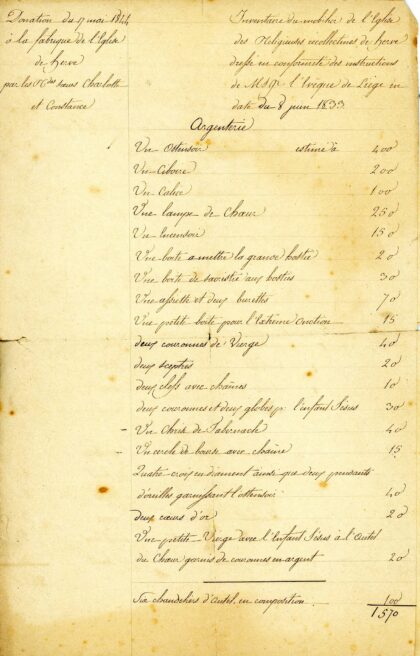 Donation du 17 mai 1844
à la fabrique de l'Eglise
de herve
par les Rdes sœurs Charlotte
et Constance
Inventaire du mobilier de l'Eglise
des Religieuses recollectines de herve
dressé en conformité des instructions
de MSgr l'Evêque de Liège en
date du 8 juin 1833
Argenterie
Un Ostensoir estimé à 400
Un Ciboire 200
Un Calice 100
Une lampe de Chœur 250
Un Encensoir 150
Une boite a mettre la grande hostie 20
Une boite de sacristie aux hosties 30
Une assiette et deux burettes 70
Une petite boite pour l'Extrême Onction 15
deux couronnes de Vierge 40
deux sceptres 20
deux clefs avec chaines 10
deux couronnes et deux globes p. l'enfant Jésus 30
Un Christ de Tabernacle 40
Un cercle de bourse avec chaine 15
Quatre croix en diament ainsi que deux pendants
d'oreilles garnissant l'ostensoir 40
deux cœurs d'or 20
Une petite Vierge avec l'Enfant Jésus à l'Autel
du Chœur garnis de couronnes en argent 20
Six chandeliers d'autel en composition 100
1570